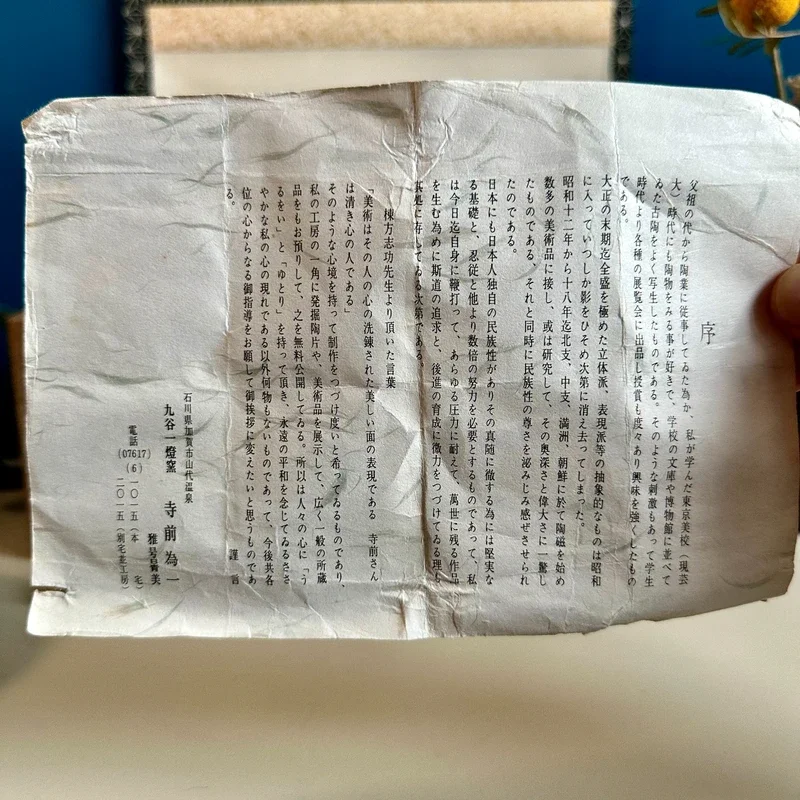 序
父祖の代から陶業に従事してゐた為か、私が学んだ東京美校(現芸
大)時代にも陶物をみる事が好きで、学校の文庫や博物館に並べて
ゐた古陶をよく写生したものである。そのような刺激もあって学生
時代より各種の展覧会に出品し授賞も度々あり興味を強くしたもの
である。
大正の末期迄全盛を極めた立体派、表現派等の抽象的なものは昭和
に入っていつしか影をひそめ次第に消え去ってしまった。
昭和十二年から十八年迄北支、中支、満洲、朝鮮に於て陶磁を始め
数多の美術品に接し、或は研究して、その奥深さと偉大さに一驚し
たものである。それと同時に民族性の尊さを泌みじみ感ぜさせられ
たのである。
日本にも日本人独自の民族性がありその真随に徹する為には堅実な
る基礎と、忍従と他より数倍の努力を必要とするものであって、私
は今日迄自身に鞭打って、あらゆる圧力に耐えて、萬世に残る作品
を生む為めに斯道の追求と、後進の育成に微力をつづけてゐる理も
其処に存してゐる次第である。
棟方志功先生より頂いた言葉
「美術はその人の心の洗錬された美しい面の表現である 寺前さん
は清き心の人である」
そのような心境を持って制作をつづけ度いと希ってゐるものであり、
私の工房の一角に発掘陶片や、美術品を展示して、広く一般の所蔵
品をもお預りして、之を無料公開してゐる。所以は人々の心に「う
るをい」と「ゆとり」を持って頂き、永遠の平和を念じてゐるささ
やかな私の心の現れである以外何物もないものであって、今後共各
位の心からなる御指導をお願して御挨拶に変えたいと思うものであ
る。
謹言
石川県加賀市山代温泉
九谷一燈窯 寺前為一
雅号青美
電話(07617)(6)一〇一五(本宅)
二〇一五(別宅並工房)